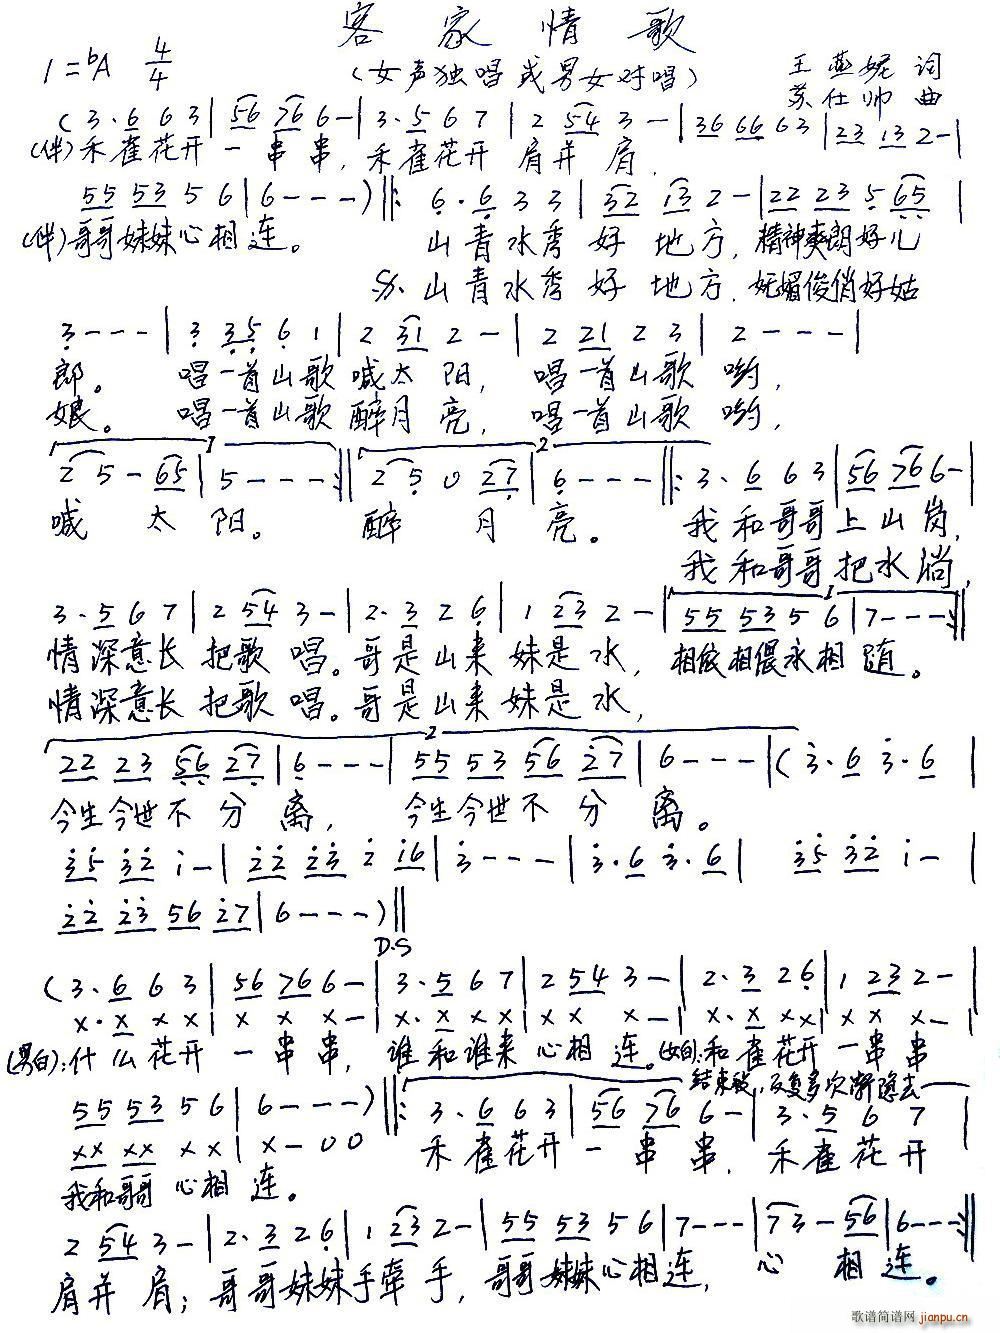 客家情歌
1=ᵇA 4/4
(女声独唱或男女对唱)
王燕妮 词
苏仕帅 曲
(3·6 6 3|56 766-|3·5 6 7|2 54 3-|36 66 63|23 13 2-|
(伴)禾雀花开一串串,禾雀花开肩并肩,
55 53 5 6|6---)‖:6·6 3 3|32 13 2-|22 23 5 65|
(伴)哥哥妹妹心相连。 山青水秀好地方,精神爽朗好儿
𝄋 山青水秀好地方,妩媚俊俏好姑
3---|3 35 6 1|2 31 2-|2 21 2 3|2---|
郎。 唱一首山歌喊太阳, 唱一首山歌哟,
娘。 唱一首山歌醉月亮, 唱一首山歌哟,
1 2
2 5-65|5---:‖2 5 0 27|6---‖:3·6 6 3|56 766-|
喊太阳。 醉月亮。 我和哥哥上山岗,
我和哥哥把水淌,
1
3·5 6 7|2 54 3-|2·3 2 6|1 23 2-|55 53 5 6|7---:‖
情深意长把歌唱。哥是山来妹是水,相依相偎永相随。
情深意长把歌唱。哥是山来妹是水,
2
22 23 56 27|6---|55 53 56 27|6---|(3·6 3·6|
今生今世不分离, 今生今世不分离。
35 32 1-|22 23 2 16|3---|3·6 3·6|35 32 1-|
22 23 56 27|6---)‖
D.S
(3·6 6 3|56 766-|3·5 6 7|2 54 3-|2·3 2 6|1 23 2-|
x·x x x|x x x-|x·x x x|x x x-|x·x x x|x x x-|
(男白):什么花开一串串,谁和谁来心相连。(女白):和雀花开一串串
结束被..反复多次渐隐去
55 53 5 6|6---)‖:3·6 6 3|56 76 6-|3·5 6 7|
xx xx x x|x-0 0
禾雀花开一串串,禾雀花开
我和哥哥心相连。
2 54 3-|2·3 2 6|1 23 2-|55 53 5 6|7---|73-56|6---:‖
肩并肩;哥哥妹妹手牵手,哥哥妹妹心相连,心相连。
歌谱简谱网 jianpu.cn